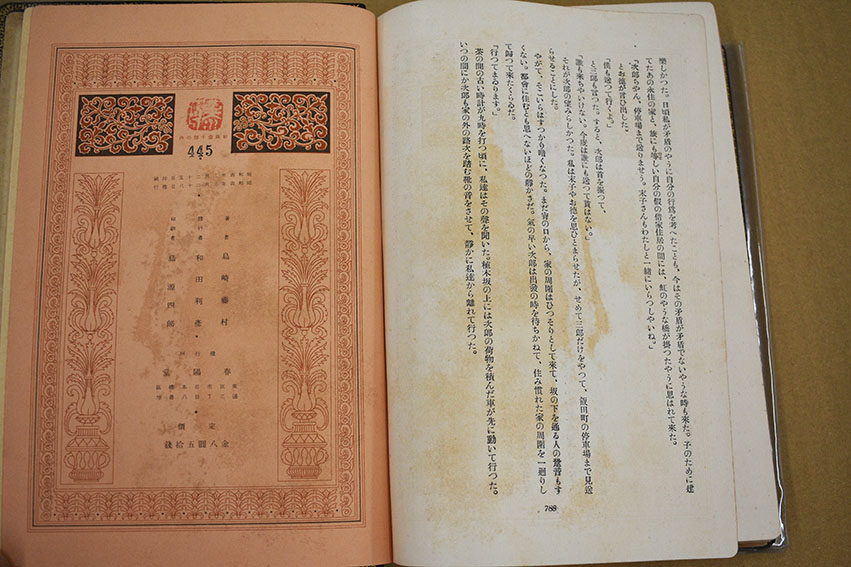 樂しかつた。日頃私が矛盾のやうに自分の行爲を考へたことも、今はその矛盾が矛盾でないやうな時も來た。子のために建
てたあの永住の家と、誰にも等しい自分の假の借家住居の間には、虹のやうな橋が掛つたやうに思はれて來た。
「次郎ちやん、停車場まで送りませう。末子さんもわたしと一緒にいらつしやいね。」
とお德が言ひ出した。
「僕も送つて行くよ。」
と三郎も言つた。すると、次郎は首を振つて、
「誰も來ちやいけない。今度は誰にも送つて貰はない。」
それが次郎の望みらしかつた。私は末子やお德を思ひとまらせたが、せめて三郎だけをやつて、飯田町の停車場まで見送
らせることにした。
やがて、そこいらはすつかり暗くなつた。まだ宵の口から、家の周圍はひつそりとして來て、坂の下を通る人の跫音もす
くない。都會に住むとも思へないほどの靜かさだ。氣の早い次郎は出發の時を待ちかねて、住み慣れた家の周圍を一廻りし
て歸つて來たくらゐだ。
「行つてまゐります。」
茶の間の古い時計が九時を打つ頃に、私達はその聲を聞いた。植木坂の上には次郎の荷物を積んだ車が先に動いて行つた。
いつの間にか次郎も家の外の路次を踏む靴の音をさせて、靜かに私達から離れて行つた。
788
445
著者 島崎藤村
發行者 和田利彥
印刷者 島源四郎
發行所 春陽堂
定價 金八圓五拾錢